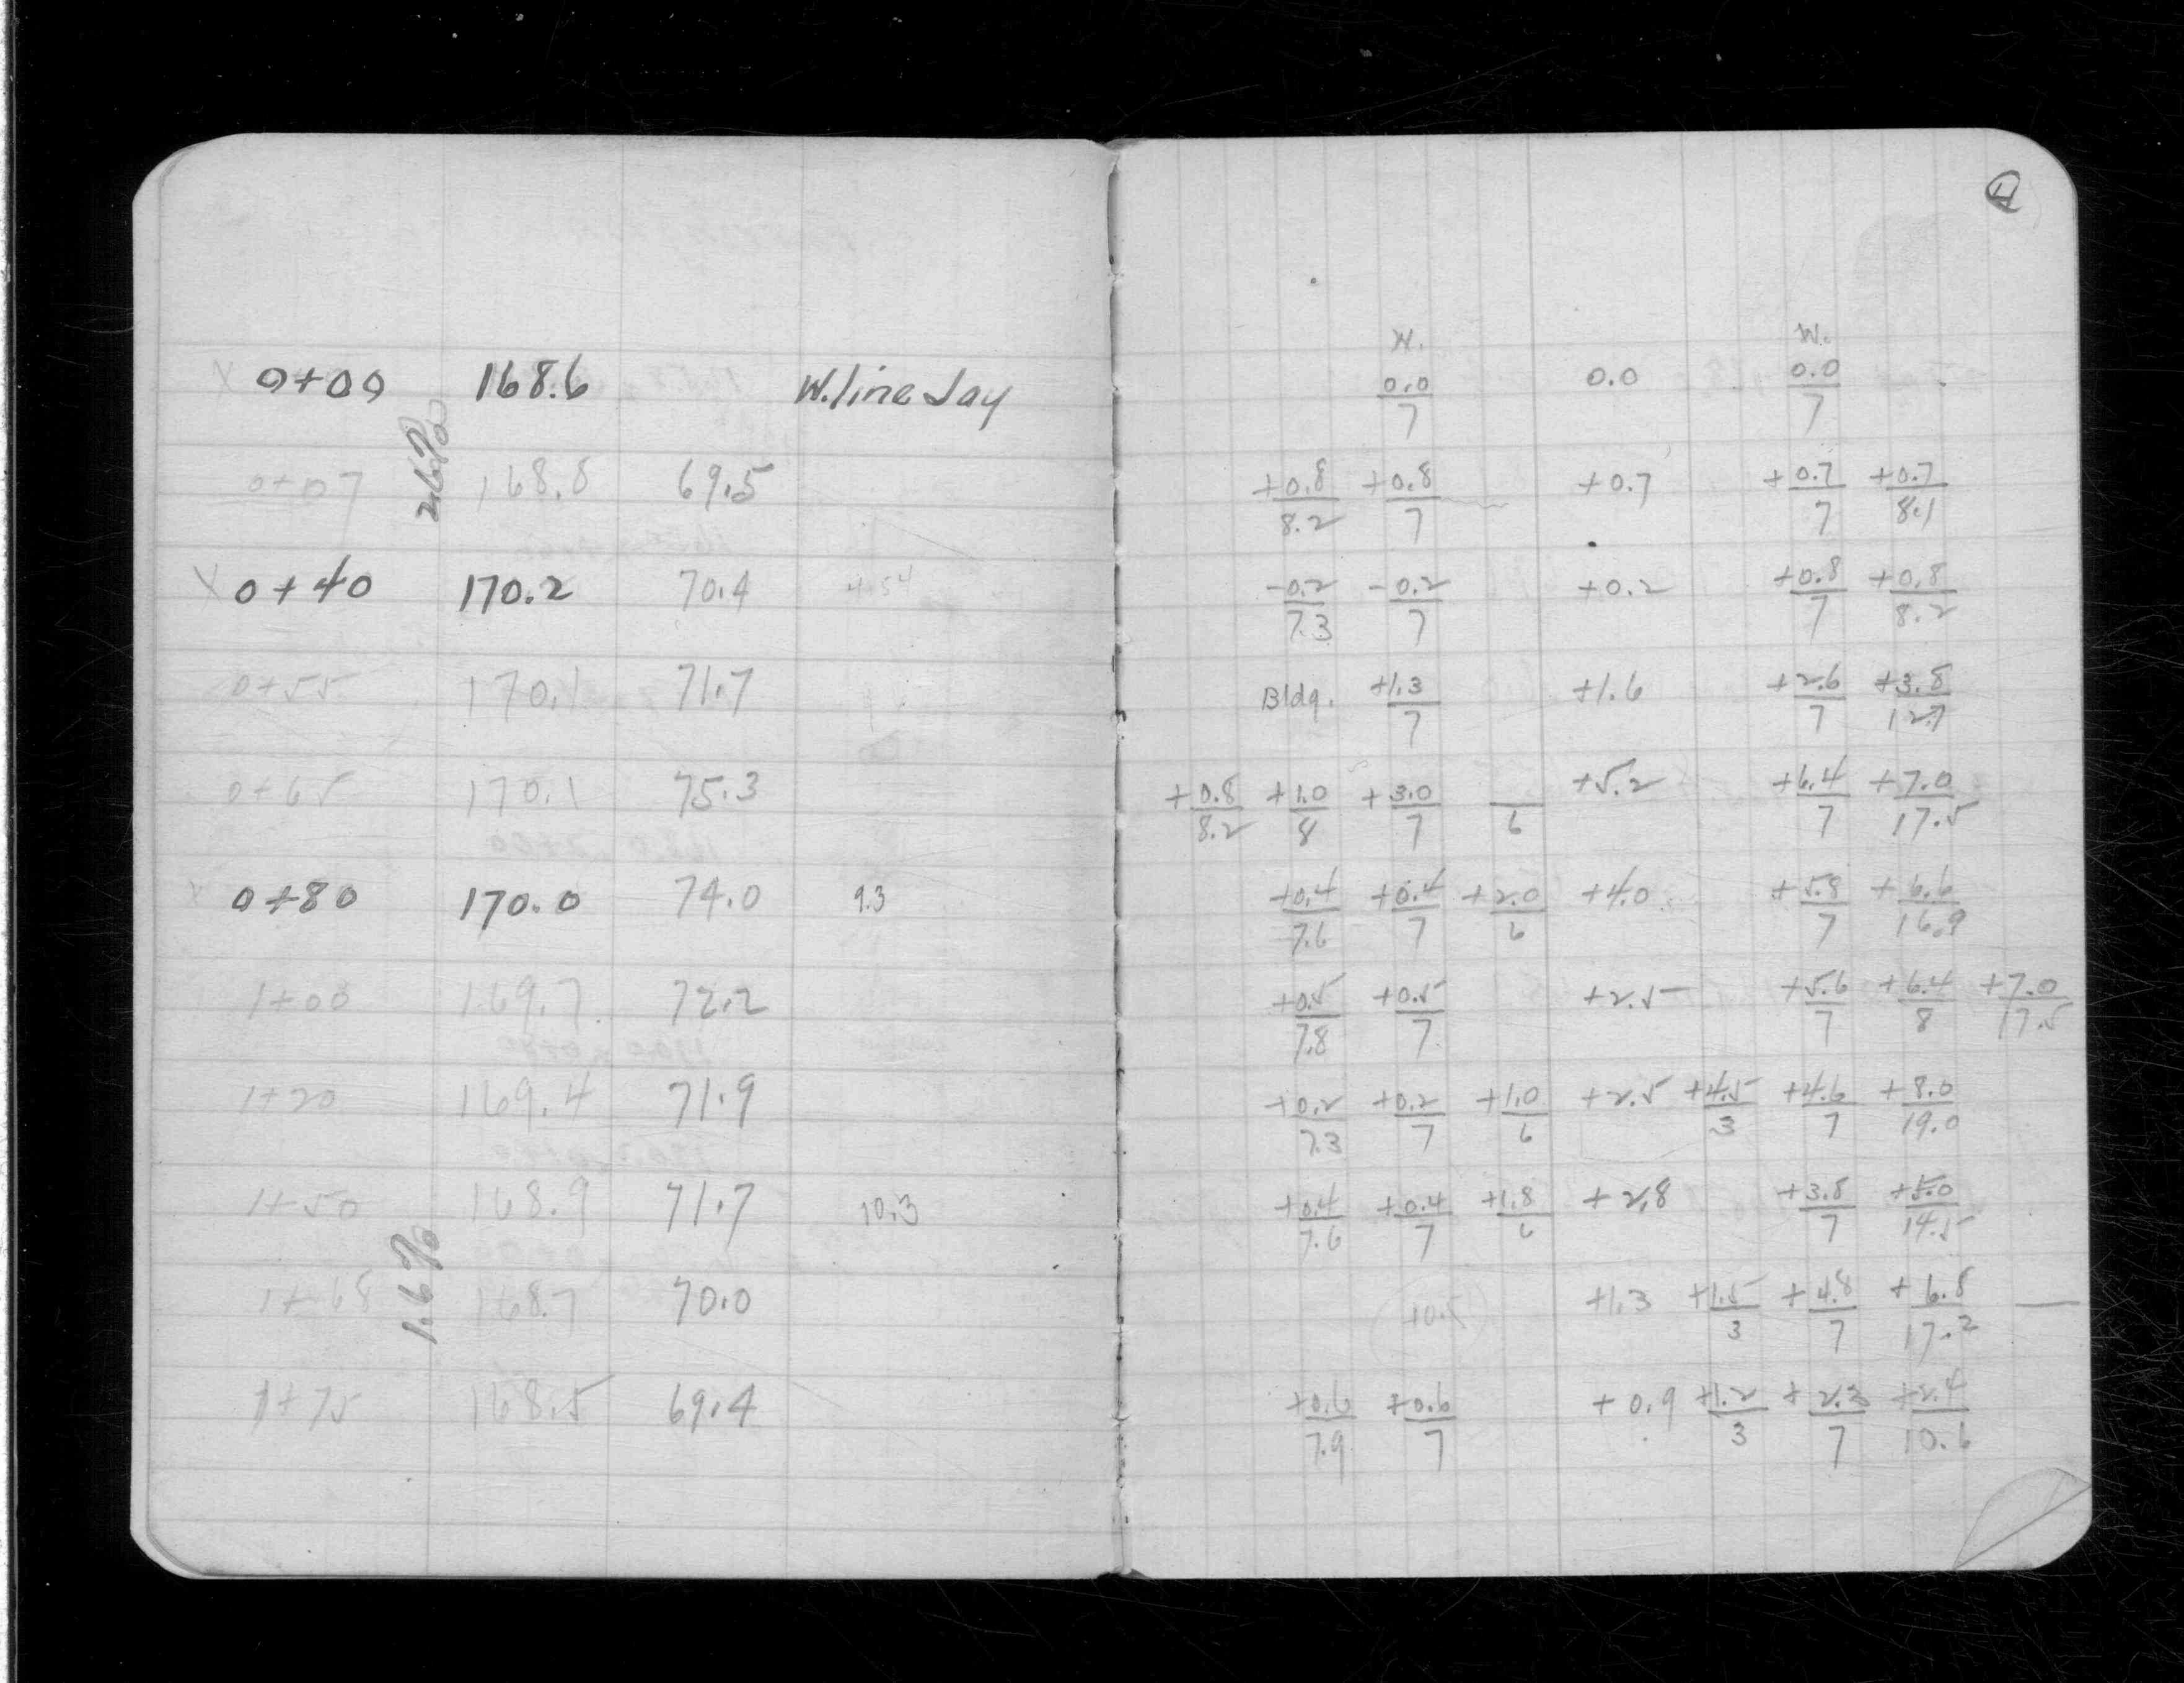 4
W. W.
0+00 168.6 W. line Jay 0.0/7 0.0 0.0/7
2.6%
0+07 168.8 69.5 +0.8/8.2 +0.8/7 +0.7 +0.7/7 +0.7/8.1
X 0+40 170.2 70.4 4.54 -0.2/7.3 -0.2/7 +0.2 +0.8/7 +0.8/8.2
0+55 170.1 71.7 Bldg. +1.3/7 +1.6 +2.6/7 +3.8/12.7
0+65 170.1 75.3 +0.8/8.2 +1.0/8 +3.0/7 —/6 +5.2 +6.4/7 +7.0/17.5
0+80 170.0 74.0 9.3 +0.4/7.6 +0.4/7 +2.0/6 +4.0 +5.8/7 +6.6/16.9
1+00 169.7 72.2 +0.5/7.8 +0.5/7 +2.5 +5.6/7 +6.4/8 +7.0/17.5
1+20 169.4 71.9 +0.2/7.3 +0.2/7 +1.0/6 +2.5 +4.5/3 +4.6/7 +8.0/19.0
1+50 168.9 71.7 10.3 +0.4/7.6 +0.4/7 +1.8/6 +2.8 +3.8/7 +5.0/14.5
1.6%
1+68 168.7 70.0 +1.3 +1.5/3 +4.8/7 +6.8/17.2 —
1+75 168.5 69.4 +0.6/7.9 +0.6/7 +0.9 +1.2/3 +2.3/7 +2.4/10.6